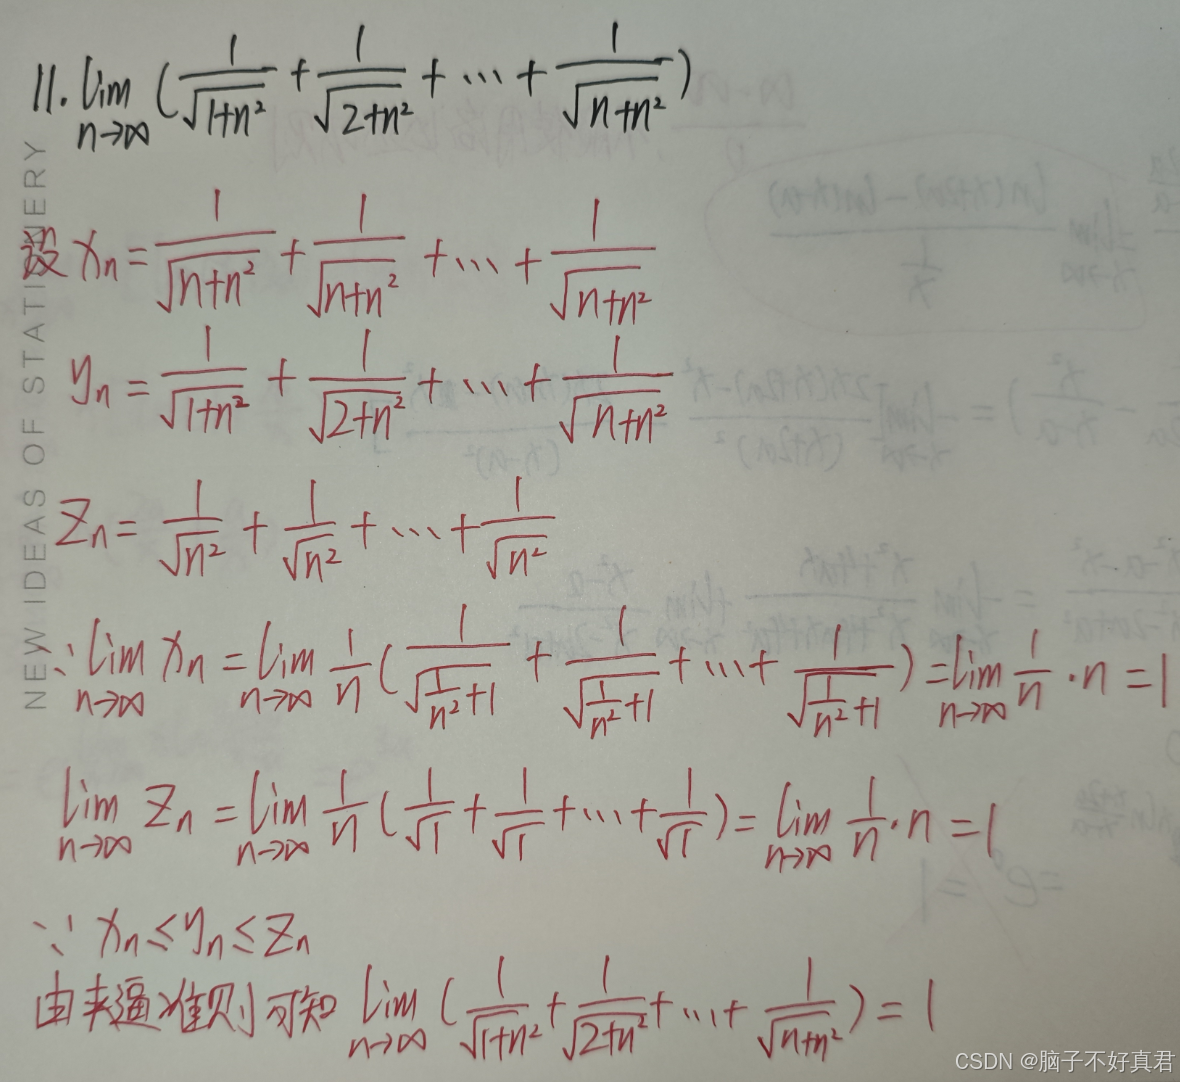 11. lim n→∞ (1/√(1+n²) + 1/√(2+n²) + ⋯ + 1/√(n+n²))
设 xn = 1/√(n+n²) + 1/√(n+n²) + ⋯ + 1/√(n+n²)
yn = 1/√(1+n²) + 1/√(2+n²) + ⋯ + 1/√(n+n²)
Zn = 1/√n² + 1/√n² + ⋯ + 1/√n²
∵ lim n→∞ xn = lim n→∞ 1/n (1/√(1/n²+1) + 1/√(1/n²+1) + ⋯ + 1/√(1/n²+1)) = lim n→∞ 1/n · n = 1
lim n→∞ Zn = lim n→∞ 1/n (1/√1 + 1/√1 + ⋯ + 1/√1) = lim n→∞ 1/n · n = 1
∵ xn ≤ yn ≤ Zn
由夹逼准则可知 lim n→∞ (1/√(1+n²) + 1/√(2+n²) + ⋯ + 1/√(n+n²)) = 1
NEW IDEAS OF STATIONERY
CSDN @脑子不好真君